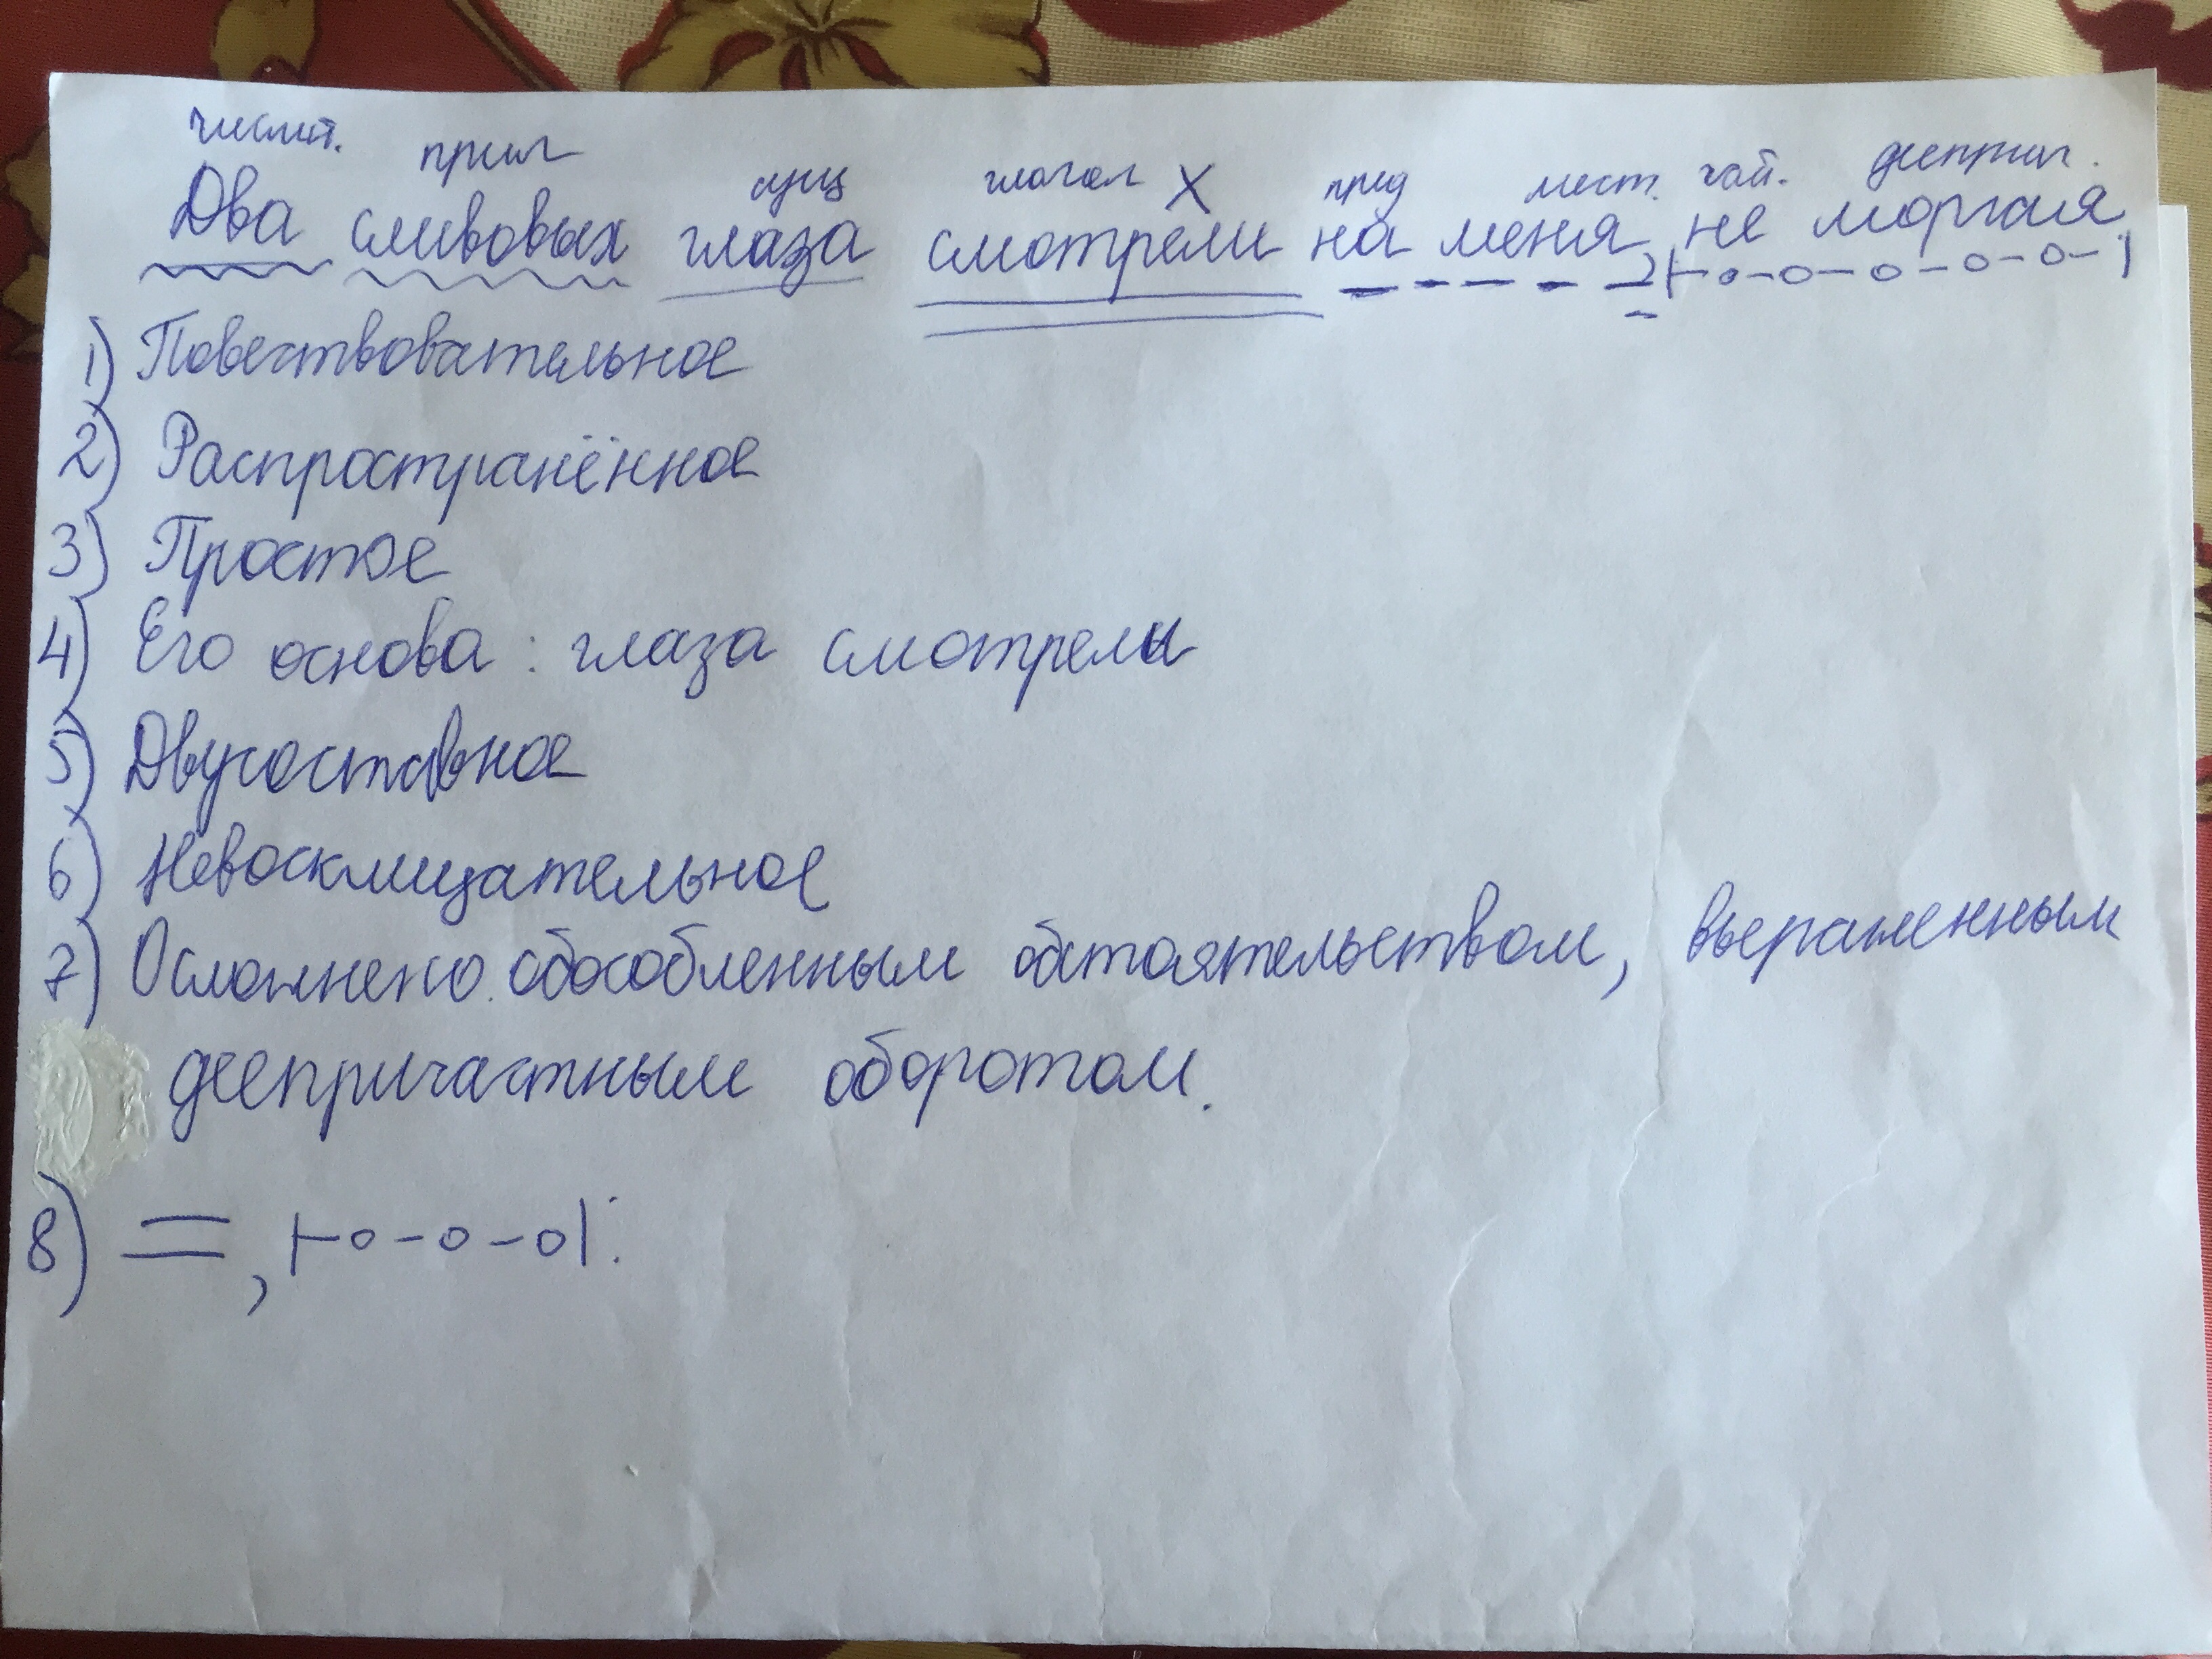 числит. прил сущ глагол X пред мест. част. дееприч.
Два сливовых глаза смотрели на меня, не моргая
1) Повествовательное
2) Распространённое
3) Простое
4) Его основа: глаза смотрели
5) Двусоставное
6) Невосклицательное
7) Осложнено обособленным обстоятельством, выраженным
деепричастным оборотом.
8) =, |-о-о-о|.